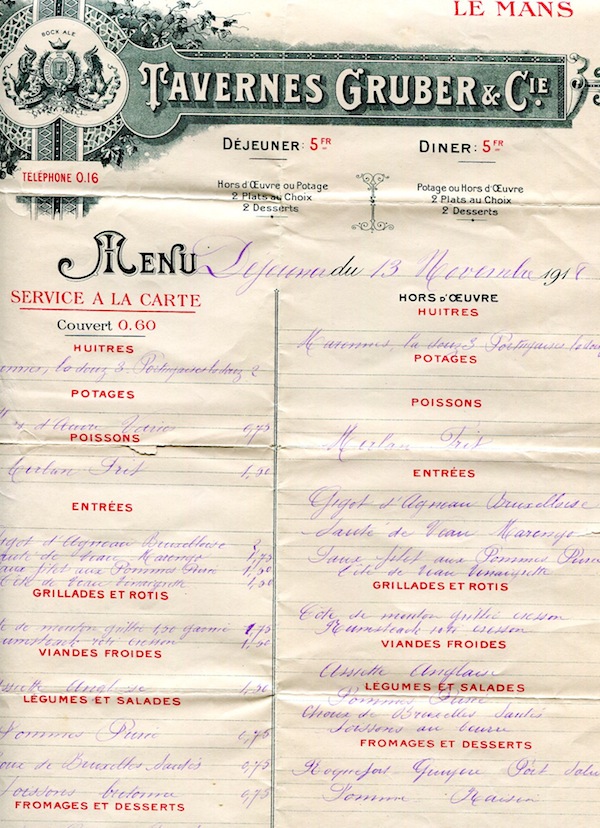 LE MANS
BOCK ALE
TAVERNES GRUBER & CIE.
DÉJEUNER: 5 FR
DINER: 5 FR
TÉLÉPHONE 0.16
Hors d'Œuvre ou Potage
2 Plats au Choix
2 Desserts
Potage ou Hors d'Œuvre
2 Plats au Choix
2 Desserts
MENU Déjeuner du 13 Novembre 1918
SERVICE A LA CARTE
Couvert 0.60
HUITRES
la douz 3 Portugaises la douz 2
POTAGES
d'œuvre Variés 0,75
POISSONS
Merlan Frit 1,50
ENTRÉES
Gigot d'Agneau Bruxelloise 2
Sauté de Veau Marengo 1,75
aux Pommes Purée 1,50
Côte de Veau Vinaigrette 1,50
GRILLADES ET ROTIS
de mouton grillée 1,50 garnie 1,75
Rumsteack rôti cresson 1,50
VIANDES FROIDES
Assiette Anglaise 1,50
LÉGUMES ET SALADES
Pommes Purée 0,75
Choux de Bruxelles Sautés 0,75
bretonne 0,75
FROMAGES ET DESSERTS
HORS d'ŒUVRE
HUITRES
Marennes, la douz 3 Portugaises la douz
POTAGES
POISSONS
Merlan Frit
ENTRÉES
Gigot d'Agneau Bruxelloise
Sauté de Veau Marengo
Faux filet aux Pommes Purée
Côte de Veau Vinaigrette
GRILLADES ET ROTIS
Côte de mouton grillée cresson
Rumsteack rôti cresson
VIANDES FROIDES
Assiette Anglaise
LÉGUMES ET SALADES
Pommes Purée
Choux de Bruxelles Sautés
au beurre
FROMAGES ET DESSERTS
Roquefort Gruyère Port Salut
Pomme Raisin